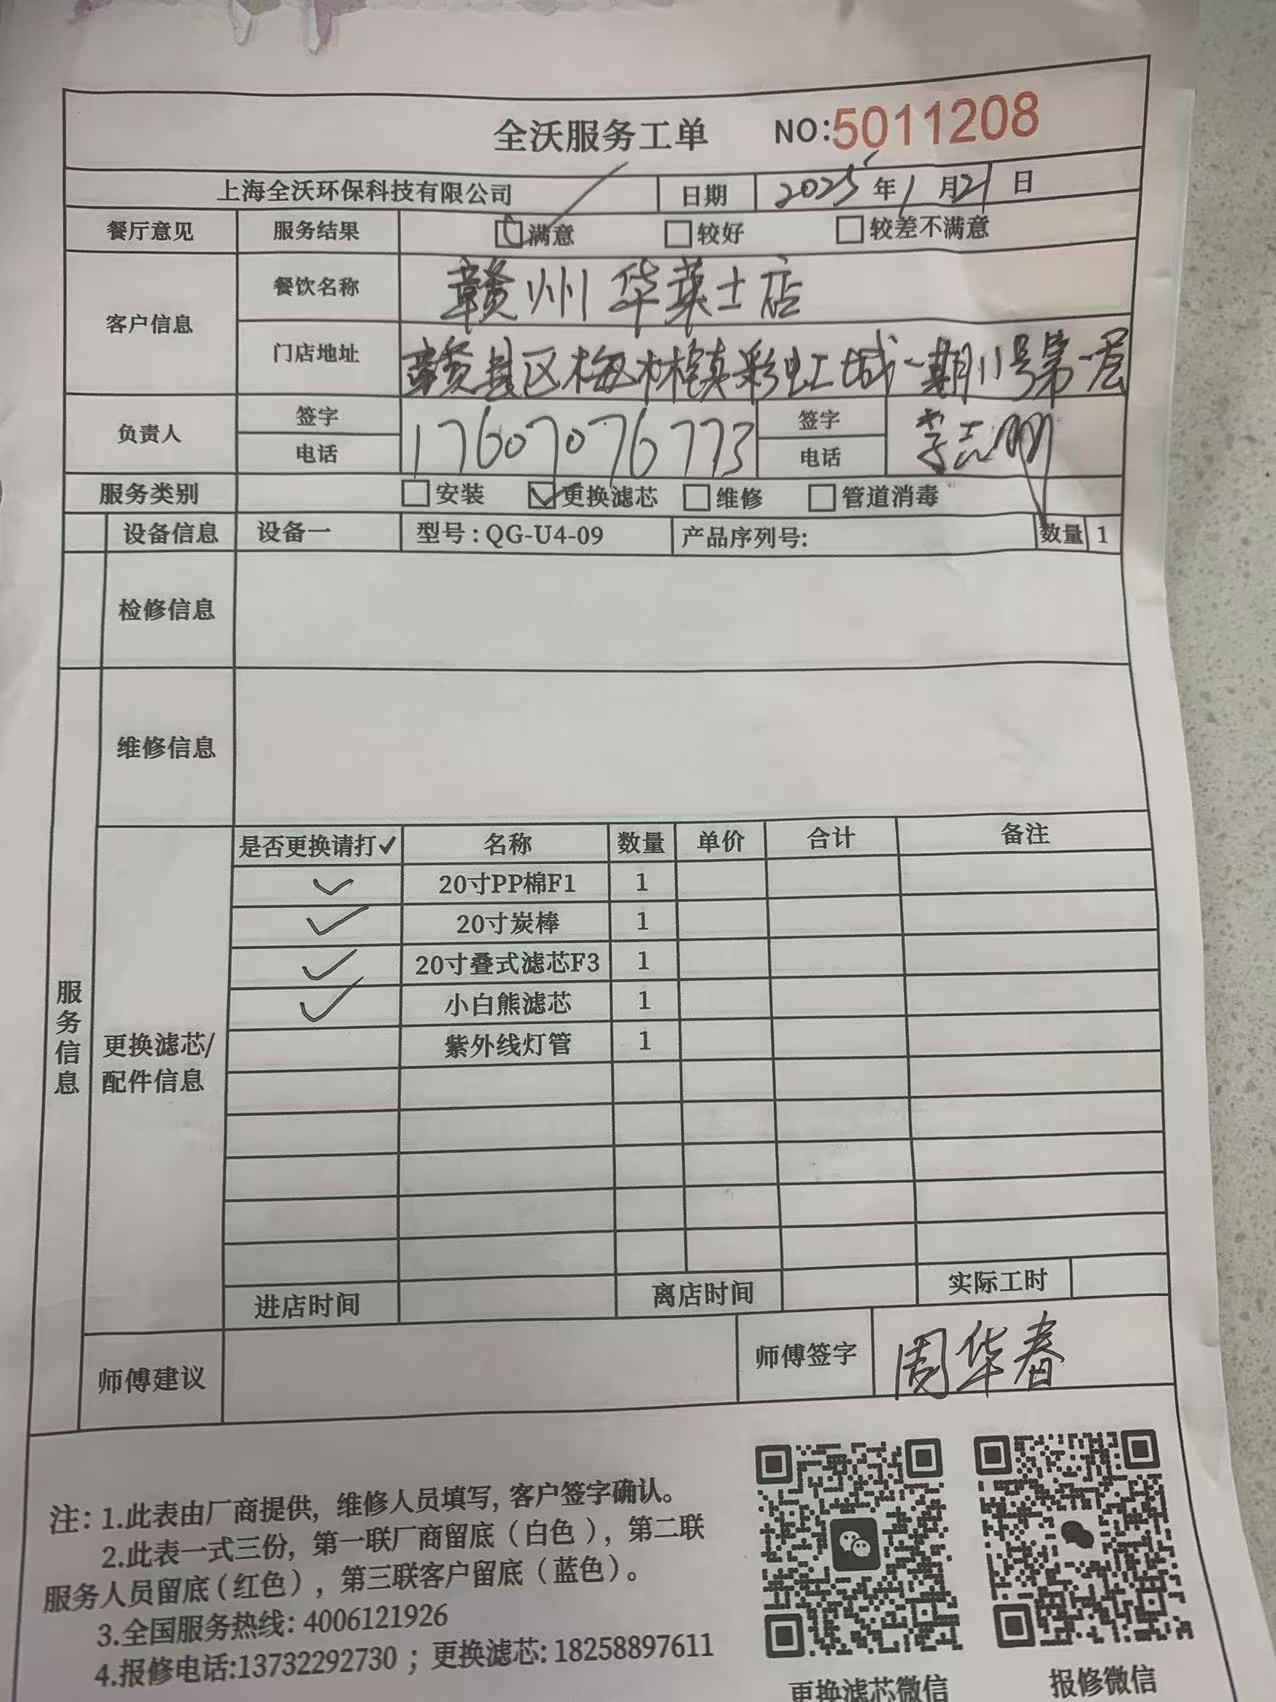 全沃服务工单 NO:5011208
上海全沃环保科技有限公司 日期 2025年1月21日
餐厅意见 服务结果 满意 较好 较差不满意
客户信息 餐饮名称 赣州华莱士店
门店地址 赣县区梅林镇彩虹城一期11号第一层
负责人 签字 电话 17607076773 签字 电话 李志明
服务类别 安装 更换滤芯 维修 管道消毒
设备信息 设备一 型号:QG-U4-09 产品序列号: 数量 1
检修信息
维修信息
服务信息
更换滤芯/配件信息
是否更换请打✓ 名称 数量 单价 合计 备注
✓ 20寸PP棉F1 1
✓ 20寸炭棒 1
✓ 20寸叠式滤芯F3 1
✓ 小白熊滤芯 1
紫外线灯管 1
进店时间 离店时间 实际工时
师傅建议 师傅签字 周华春
注:1.此表由厂商提供,维修人员填写,客户签字确认。
2.此表一式三份,第一联厂商留底(白色),第二联
服务人员留底(红色),第三联客户留底(蓝色)。
3.全国服务热线:4006121926
4.报修电话:13732292730;更换滤芯:18258897611
更换滤芯微信 报修微信